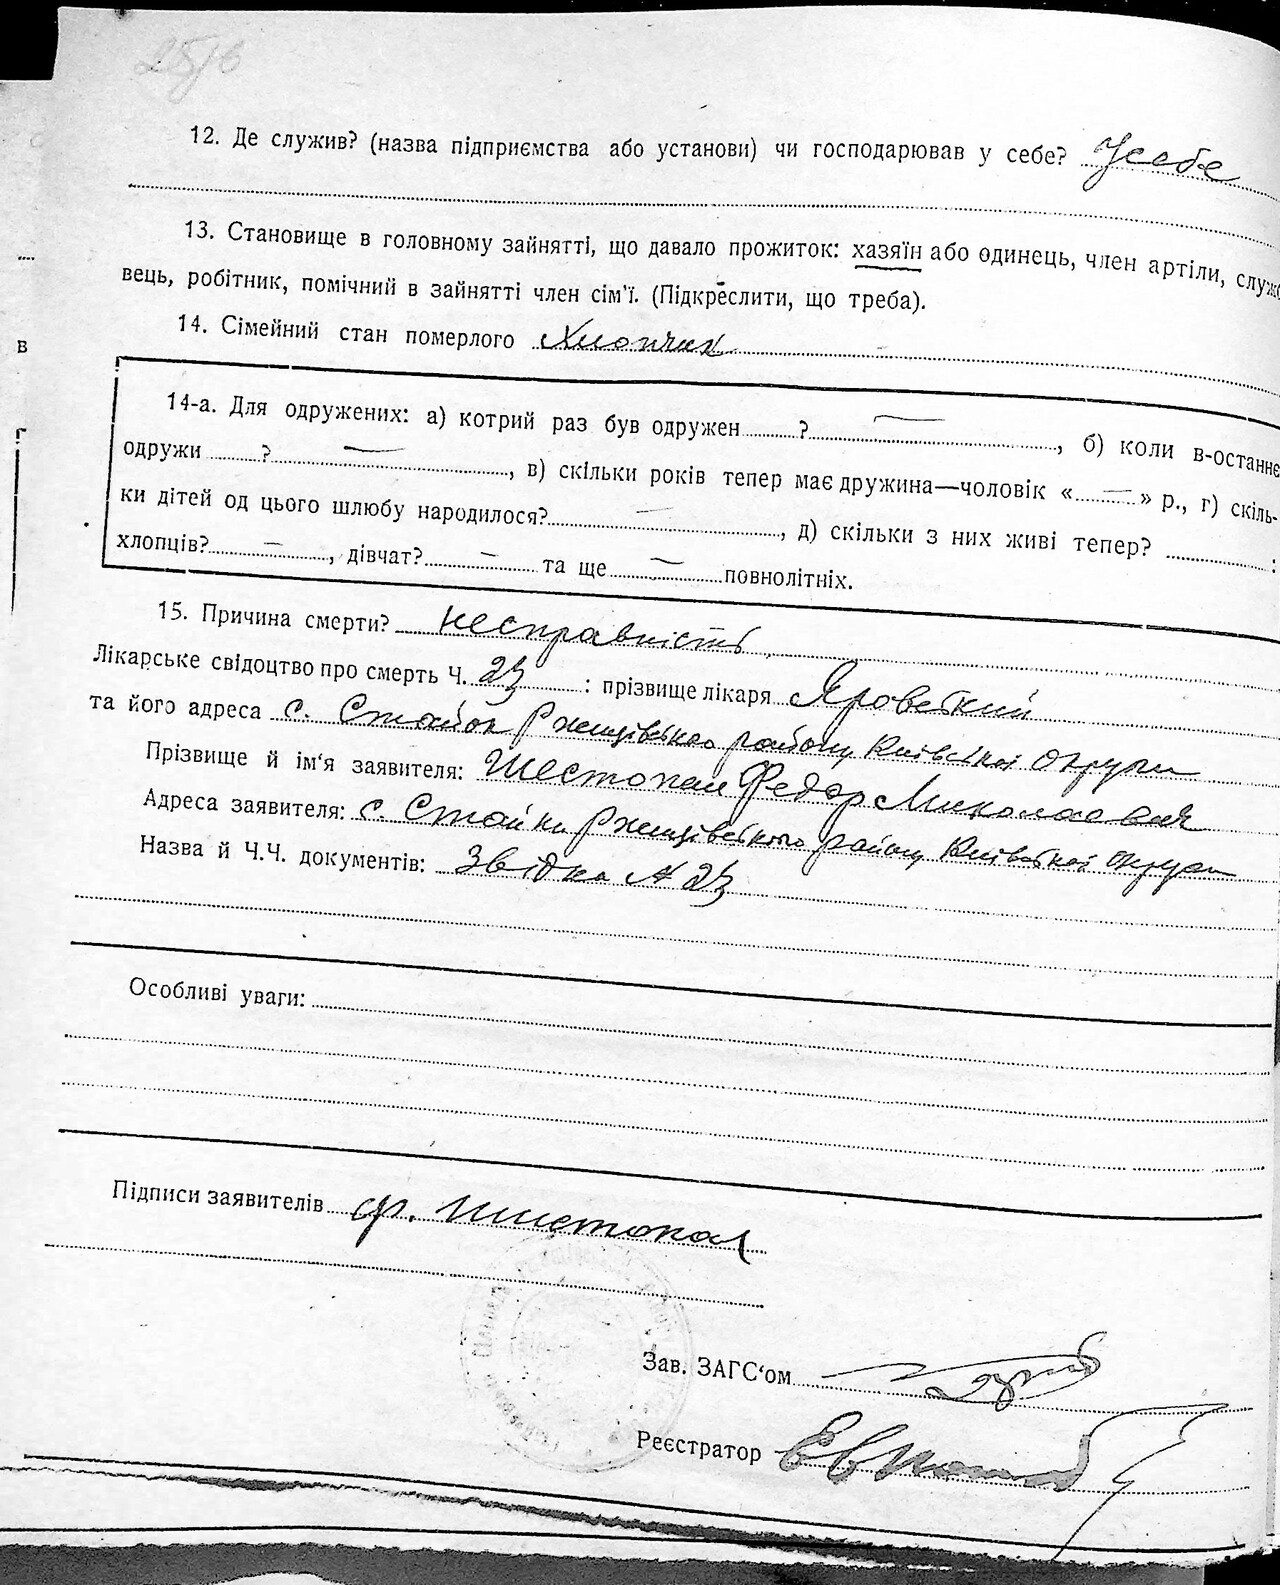 12. Де служив? (назва підприємства або установи) чи господарював у себе? У себе
13. Становище в головному зайнятті, що давало прожиток: хазяїн або одинець, член артіли, служб
вець, робітник, помічний в зайнятті член сім'ї. (Підкреслити, що треба).
14. Сімейний стан померлого Хлопчик
14-а. Для одружених: а) котрий раз був одружен ? —, б) коли в-останнє
одружи ? —, в) скільки років тепер має дружина—чоловік «—» р., г) скіль-
ки дітей од цього шлюбу народилося? —, д) скільки з них живі тепер? :
хлопців? —, дівчат? — та ще — повнолітніх.
15. Причина смерти? несправність
Лікарське свідоцтво про смерть Ч. 23 : прізвище лікаря Яровецкий
та його адреса с. Стайок Ржищівсько району Київскої Округи
Прізвище й ім'я заявителя: Шестопал Федор Миколаєвич
Адреса заявителя: с. Стайки Ржищівського району Київської округи
Назва й Ч.Ч. документів: Звідка № 23
Особливі уваги:
Підписи заявителів Ф. Шистопал
Зав. ЗАГС'ом
Реєстратор
в